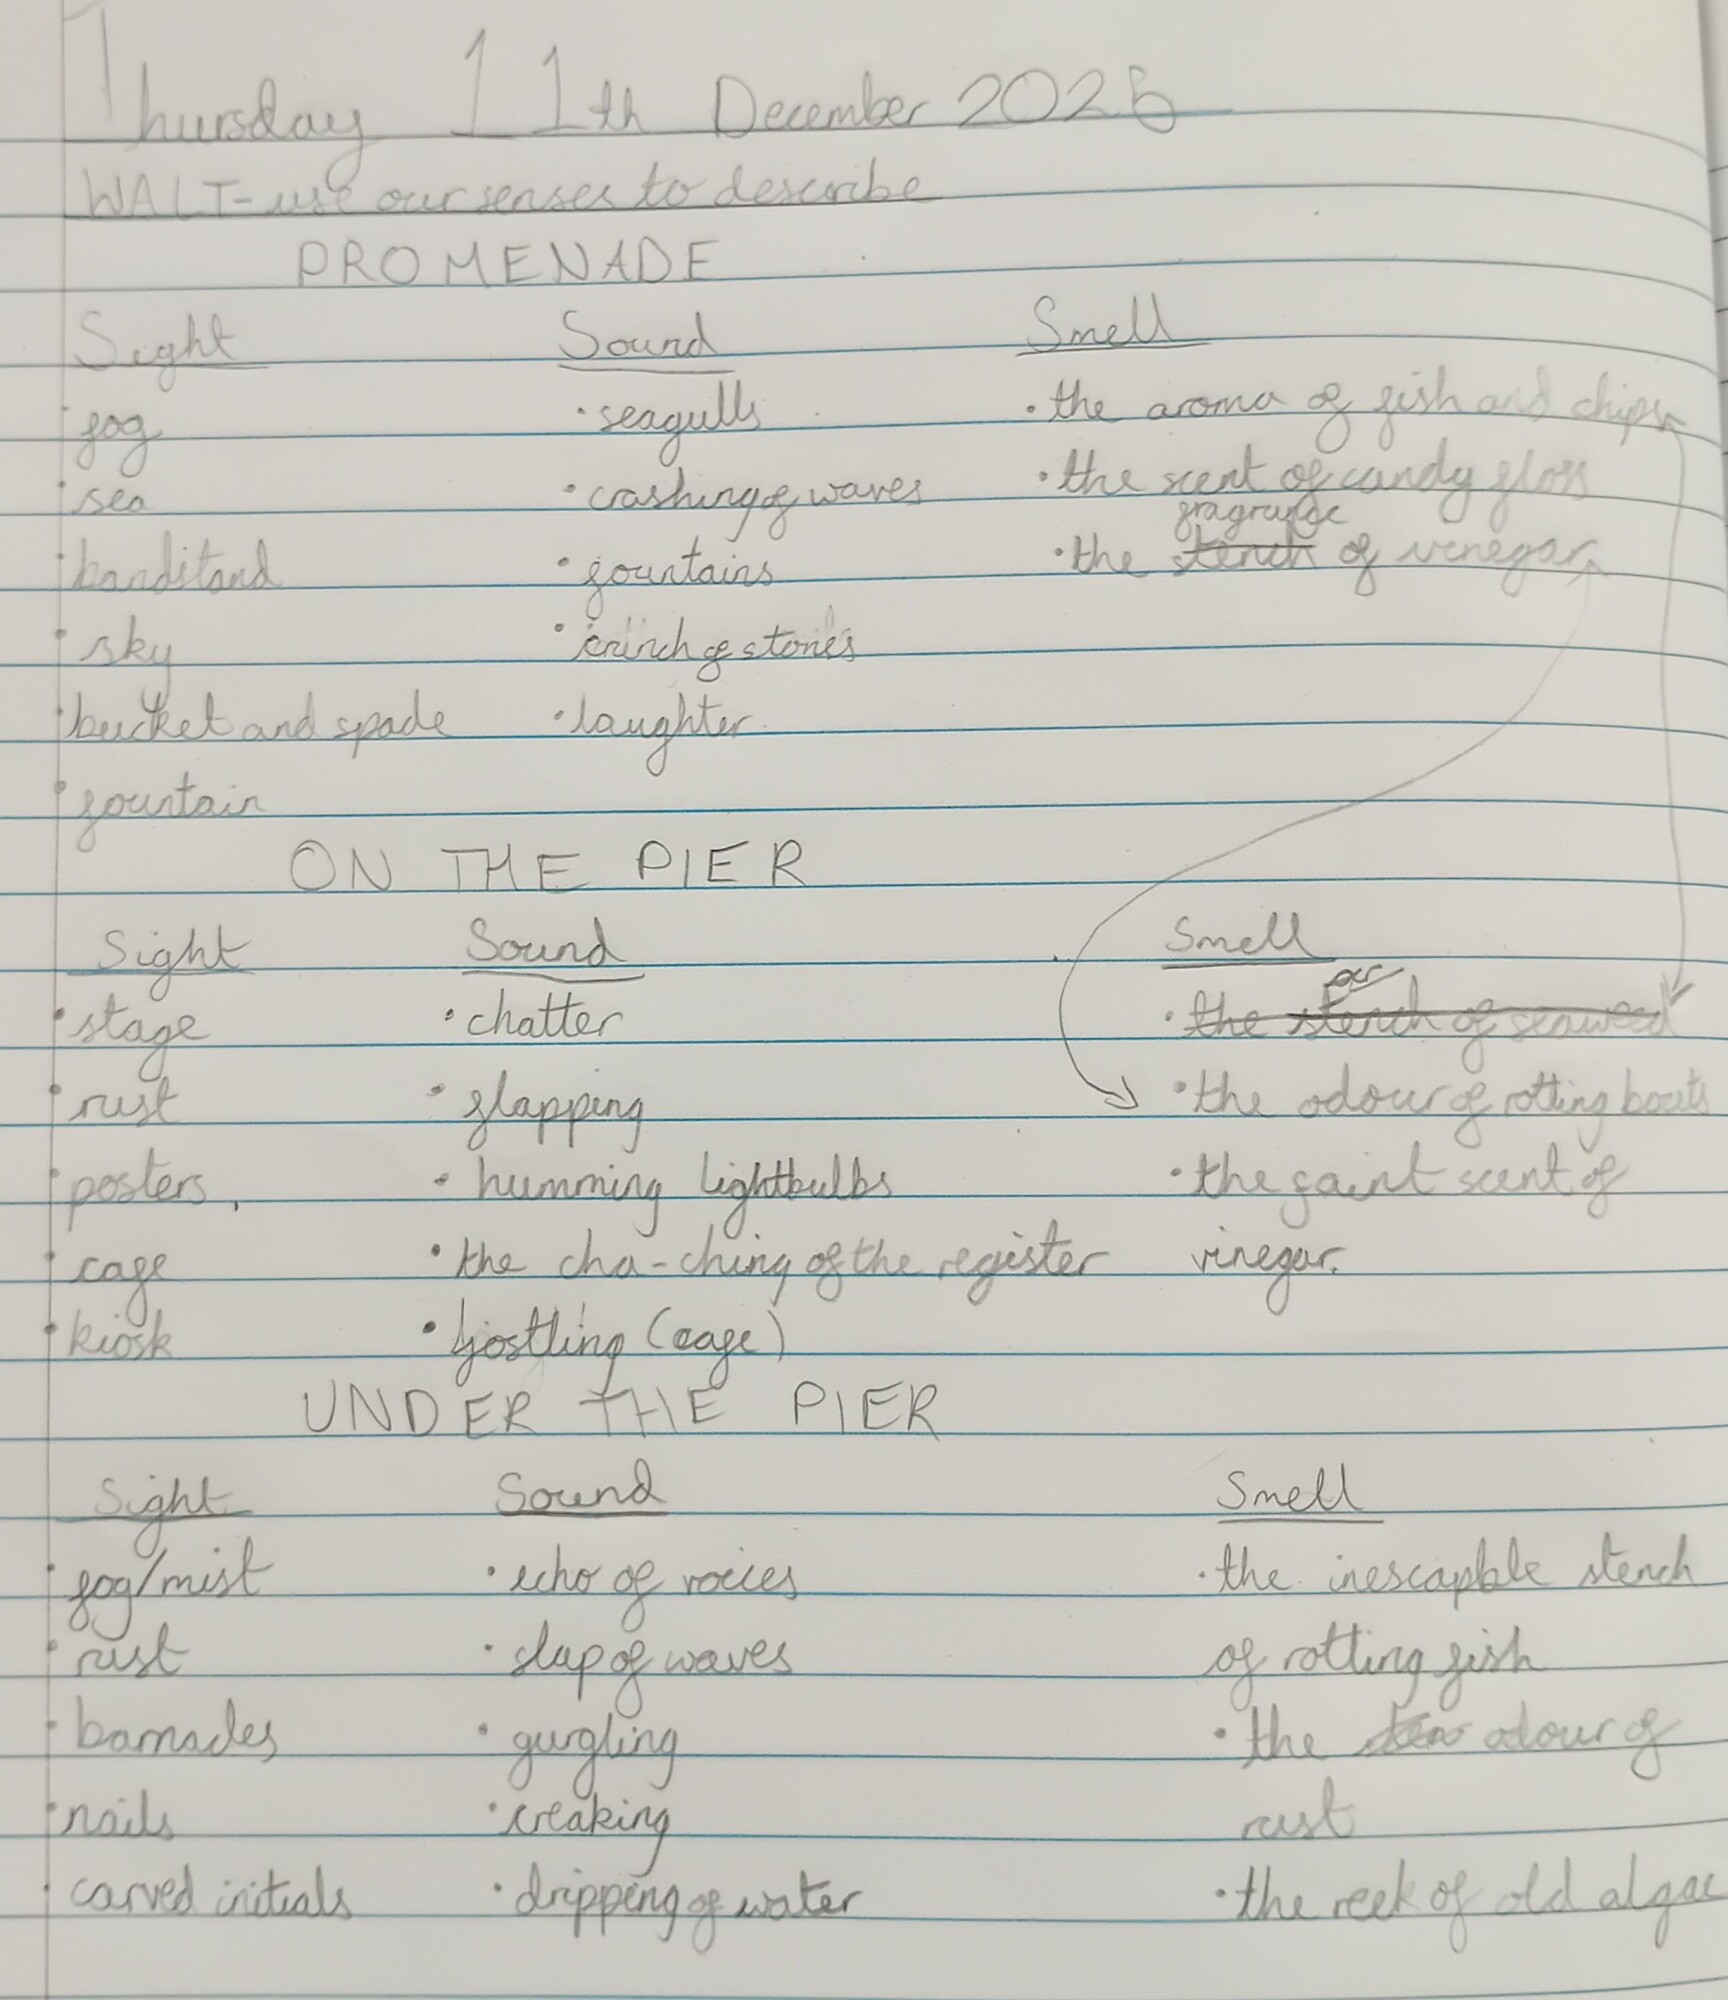 Thursday 11th December 2025
WALT-use our senses to describe
PROMENADE
Sight Sound Smell
·fog ·seagulls ·the aroma of fish and chips
·sea ·crashing of waves ·the scent of candy floss
fragrance
·bandstand ·fountains ·the stench of vinegar
·sky ·crunch of stones
·bucket and spade ·laughter
·fountain
ON THE PIER
Sight Sound Smell
·stage ·chatter ·the stench of seaweed
·rust ·flapping ·the odour of rotting boats
·posters ·humming lightbulbs ·the faint scent of
·cafe ·the cha-ching of the register vinegar.
·kiosk ·jostling (cafe)
UNDER THE PIER
Sight Sound Smell
·fog/mist ·echo of voices ·the inescapble stench
·rust ·slap of waves of rotting fish
·barnacles ·gurgling ·the odour of
·nails ·creaking rust
·carved initials ·dripping of water ·the reek of old algae